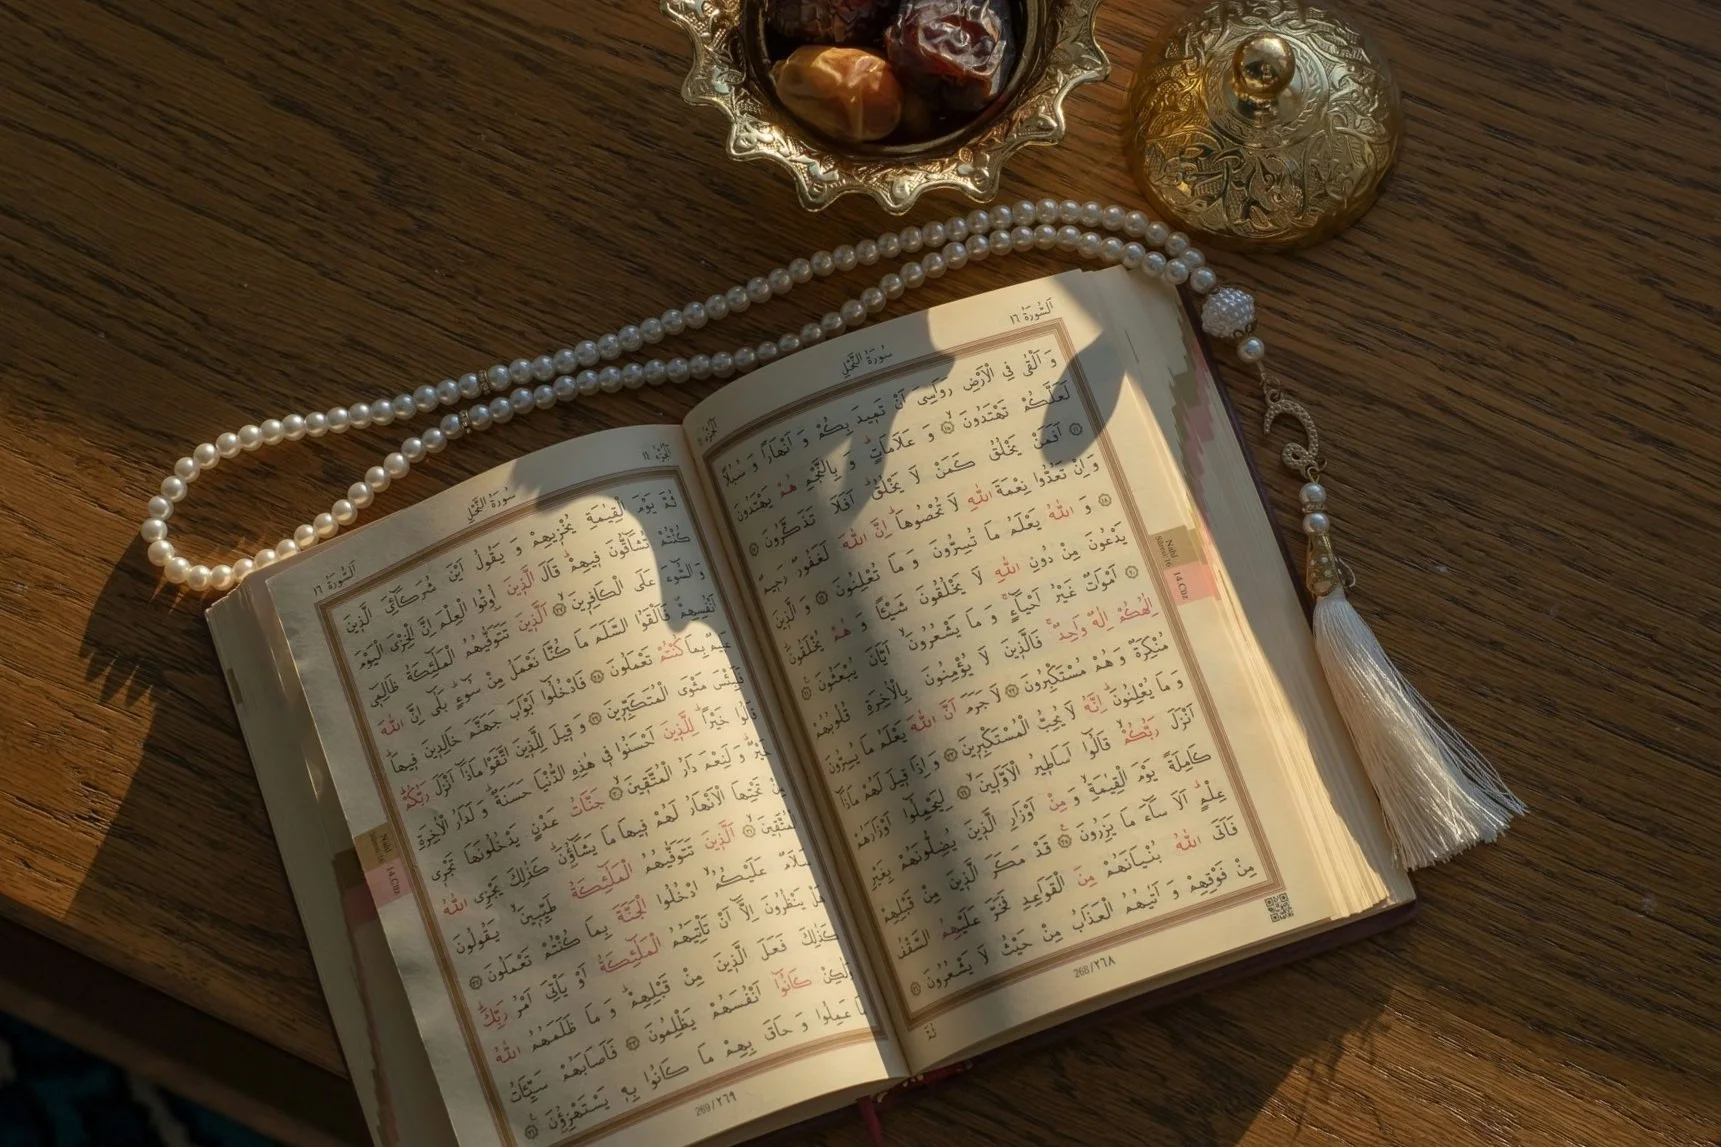 اَلسُّورَةُ ١٦
سُورَةُ النَّحْلِ
وَ اَلْقٰى فِي الْاَرْضِ رَوَاسِىَ اَنْ تَمِيدَ بِكُمْ وَ اَنْهَارًا وَ سُبُلًا
لَعَلَّكُمْ تَهْتَدُونَ ١٥ وَ عَلَامَاتٍ وَ بِالنَّجْمِ هُمْ يَهْتَدُونَ
١٦ اَفَمَنْ يَخْلُقُ كَمَنْ لَا يَخْلُقُ اَفَلَا تَذَكَّرُونَ ١٧
وَ اِنْ تَعُدُّوا نِعْمَةَ اللّٰهِ لَا تُحْصُوهَا اِنَّ اللّٰهَ لَغَفُورٌ رَحِيمٌ
١٨ وَ اللّٰهُ يَعْلَمُ مَا تُسِرُّونَ وَ مَا تُعْلِنُونَ ١٩ وَ الَّذِينَ
يَدْعُونَ مِنْ دُونِ اللّٰهِ لَا يَخْلُقُونَ شَيْئًا وَ هُمْ يُخْلَقُونَ
٢٠ اَمْوَاتٌ غَيْرُ اَحْيَاءٍ وَ مَا يَشْعُرُونَ اَيَّانَ يُبْعَثُونَ ٢١
اِلٰهُكُمْ اِلٰهٌ وَاحِدٌ فَالَّذِينَ لَا يُؤْمِنُونَ بِالْاٰخِرَةِ قُلُوبُهُمْ
مُنْكِرَةٌ وَ هُمْ مُسْتَكْبِرُونَ ٢٢ لَا جَرَمَ اَنَّ اللّٰهَ يَعْلَمُ مَا يُسِرُّونَ
وَ مَا يُعْلِنُونَ اِنَّهُ لَا يُحِبُّ الْمُسْتَكْبِرِينَ ٢٣ وَ اِذَا قِيلَ لَهُمْ مَاذَا
اَنْزَلَ رَبُّكُمْ قَالُوا اَسَاطِيرُ الْاَوَّلِينَ ٢٤ لِيَحْمِلُوا اَوْزَارَهُمْ
كَامِلَةً يَوْمَ الْقِيٰمَةِ وَ مِنْ اَوْزَارِ الَّذِينَ يُضِلُّونَهُمْ بِغَيْرِ
عِلْمٍ اَلَا سَاءَ مَا يَزِرُونَ ٢٥ قَدْ مَكَرَ الَّذِينَ مِنْ قَبْلِهِمْ
فَاَتَى اللّٰهُ بُنْيَانَهُمْ مِنَ الْقَوَاعِدِ فَخَرَّ عَلَيْهِمُ السَّقْفُ
مِنْ فَوْقِهِمْ وَ اَتٰيهُمُ الْعَذَابُ مِنْ حَيْثُ لَا يَشْعُرُونَ ٢٦
268/٢٦٨
Nahl
Sûresi 16
14.Cüz
سُورَةُ النَّحْلِ
اَلسُّورَةُ ١٦
ثُمَّ يَوْمَ الْقِيٰمَةِ يُخْزِيهِمْ وَ يَقُولُ اَيْنَ شُرَكَآئِىَ الَّذِينَ
كُنْتُمْ تُشَاقُّونَ فِيهِمْ قَالَ الَّذِينَ اُوتُوا الْعِلْمَ اِنَّ الْخِزْىَ الْيَوْمَ
وَ السُّوءَ عَلَى الْكَافِرِينَ ٢٧ اَلَّذِينَ تَتَوَفّٰيهُمُ الْمَلٰئِكَةُ ظَالِمِى
اَنْفُسِهِمْ فَاَلْقَوُا السَّلَمَ مَا كُنَّا نَعْمَلُ مِنْ سُوءٍ بَلٰى اِنَّ اللّٰهَ
عَلِيمٌ بِمَا كُنْتُمْ تَعْمَلُونَ ٢٨ فَادْخُلُوا اَبْوَابَ جَهَنَّمَ خَالِدِينَ فِيهَا
فَلَبِئْسَ مَثْوَى الْمُتَكَبِّرِينَ ٢٩ وَ قِيلَ لِلَّذِينَ اتَّقَوْا مَاذَا اَنْزَلَ رَبُّكُمْ
قَالُوا خَيْرًا لِلَّذِينَ اَحْسَنُوا فِي هٰذِهِ الدُّنْيَا حَسَنَةٌ وَ لَدَارُ الْاٰخِرَةِ
خَيْرٌ وَ لَنِعْمَ دَارُ الْمُتَّقِينَ ٣٠ جَنَّاتُ عَدْنٍ يَدْخُلُونَهَا تَجْرِى
مِنْ تَحْتِهَا الْاَنْهَارُ لَهُمْ فِيهَا مَا يَشَآؤُنَ كَذٰلِكَ يَجْزِى اللّٰهُ
الْمُتَّقِينَ ٣١ اَلَّذِينَ تَتَوَفّٰيهُمُ الْمَلٰئِكَةُ طَيِّبِينَ يَقُولُونَ
سَلَامٌ عَلَيْكُمُ ادْخُلُوا الْجَنَّةَ بِمَا كُنْتُمْ تَعْمَلُونَ ٣٢
هَلْ يَنْظُرُونَ اِلَّا اَنْ تَاْتِيَهُمُ الْمَلٰئِكَةُ اَوْ يَاْتِىَ اَمْرُ رَبِّكَ
كَذٰلِكَ فَعَلَ الَّذِينَ مِنْ قَبْلِهِمْ وَ مَا ظَلَمَهُمُ اللّٰهُ
وَلٰكِنْ كَانُوا اَنْفُسَهُمْ يَظْلِمُونَ ٣٣ فَاَصَابَهُمْ سَيِّئَاتُ
مَا عَمِلُوا وَ حَاقَ بِهِمْ مَا كَانُوا بِهِ يَسْتَهْزِؤُنَ ٣٤
269/٢٦٩
14.Cüz